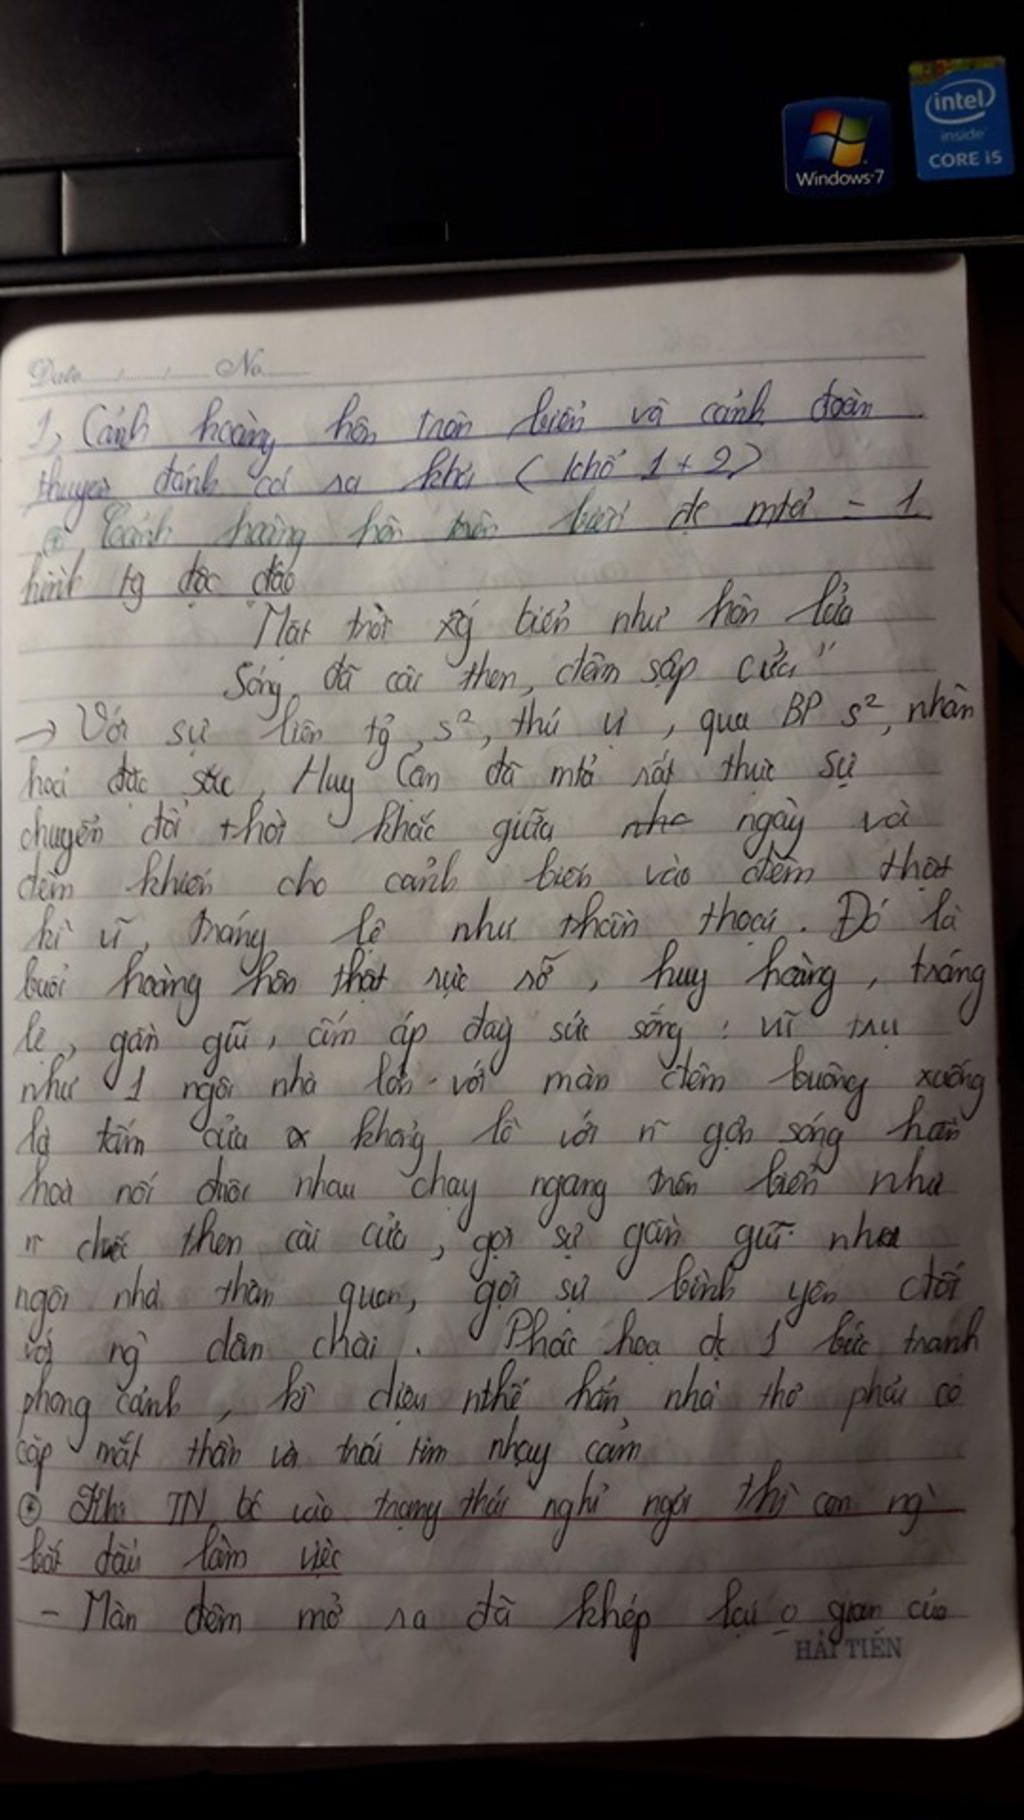 intel
inside
CORE i5
Windows 7
Date...../....../...... No......
1, Cảnh hoàng hôn trên biển và cảnh đoàn
thuyền đánh cá ra khơi (khổ 1 + 2)
* Cảnh hoàng hôn trên biển đc mtả - 1
hình tg độc đáo
Mặt trời xg biển như hòn lửa
Sóng đã cài then, đêm sập cửa"
→ Với sự liên tg, s², thú vị, qua BP s², nhân
hoá đặc sắc, Huy Cận đã mtả rất thực sự
chuyển đổi thời khắc giữa ngày và
đêm khiến cho cảnh biển vào đêm thật
kì vĩ, tráng lệ như thần thoại. Đó là
buổi hoàng hôn thật rực rỡ, huy hoàng, tráng
lệ, gần gũi, ấm áp đầy sức sống: vũ trụ
như 1 ngôi nhà lớn với màn đêm buông xuống
là tấm cửa khổng lồ với n~ gợn sóng hiền
hoà nối đuôi nhau chạy ngang trên biển như
n~ chiếc then cài cửa, gợi sự gần gũi như
ngôi nhà thân quen, gợi sự bình yên đối
với ng` dân chài. Phác hoạ đc 1 bức tranh
phong cảnh, kì diệu nthế hẳn nhà thơ phải có
cặp mắt thần và trái tim nhạy cảm
* Khi TN bć vào trạng thái nghỉ ngơi thì con ng`
bắt đầu làm việc
- Màn đêm mở ra đã khép lại o gian của
HẢI TIẾN